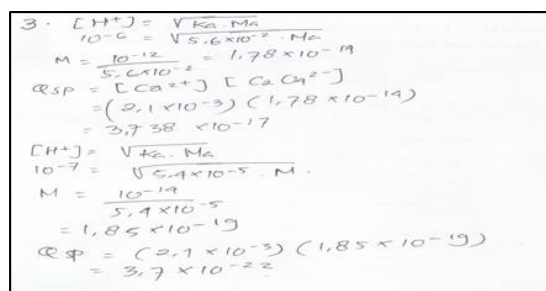 3. [H+] = √Ka. Ma
10-6 = √5,6x10-2. Ma
M = 10-12 / 5,6x10-2 = 1,78 x10-19
Qsp = [Ca2+] [Ca O42-]
= (2,1 x10-3) (1,78 x10-14)
= 3,738 x10-17
[H+] = √Ka. Ma
10-7 = √5,4x10-5. M.
M = 10-14 / 5,4x10-5
= 1,85 x10-19
Qsp = (2,1 x10-3) (1,85 x10-19)
= 3,7 x10-22